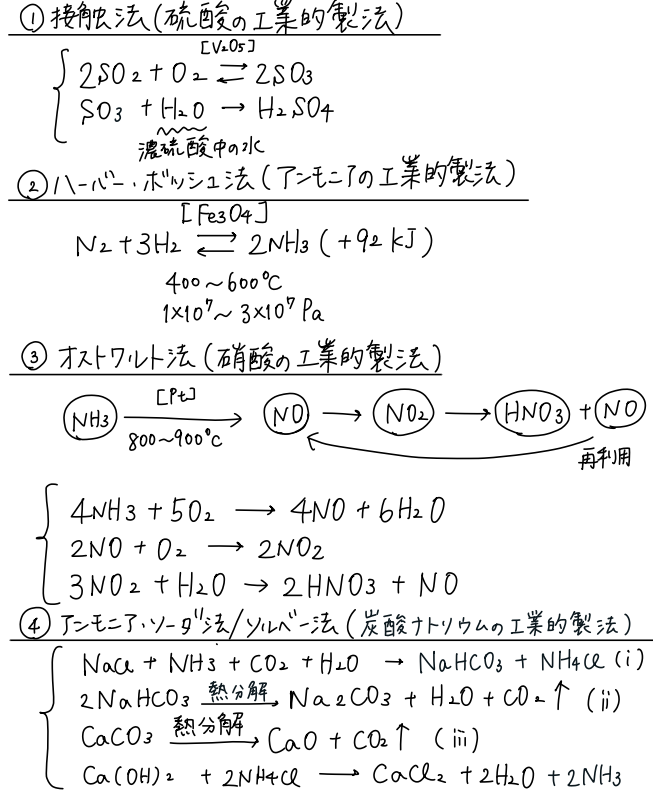 ① 接触法(硫酸の工業的製法)
[V2O5]
2SO2 + O2 ⇄ 2SO3
SO3 + H2O → H2SO4
濃硫酸中の水
② ハーバー・ボッシュ法(アンモニアの工業的製法)
[Fe3O4]
N2 + 3H2 ⇄ 2NH3 (+92 kJ)
400~600℃
1×10⁷~3×10⁷ Pa
③ オストワルト法(硝酸の工業的製法)
[Pt]
NH3 → NO → NO2 → HNO3 + NO
800~900℃
再利用
4NH3 + 5O2 → 4NO + 6H2O
2NO + O2 → 2NO2
3NO2 + H2O → 2HNO3 + NO
④ アンモニア・ソーダ法/ソルベー法(炭酸ナトリウムの工業的製法)
NaCl + NH3 + CO2 + H2O → NaHCO3 + NH4Cl (i)
2NaHCO3 熱分解→ Na2CO3 + H2O + CO2↑ (ii)
CaCO3 熱分解→ CaO + CO2↑ (iii)
Ca(OH)2 + 2NH4Cl → CaCl2 + 2H2O + 2NH3